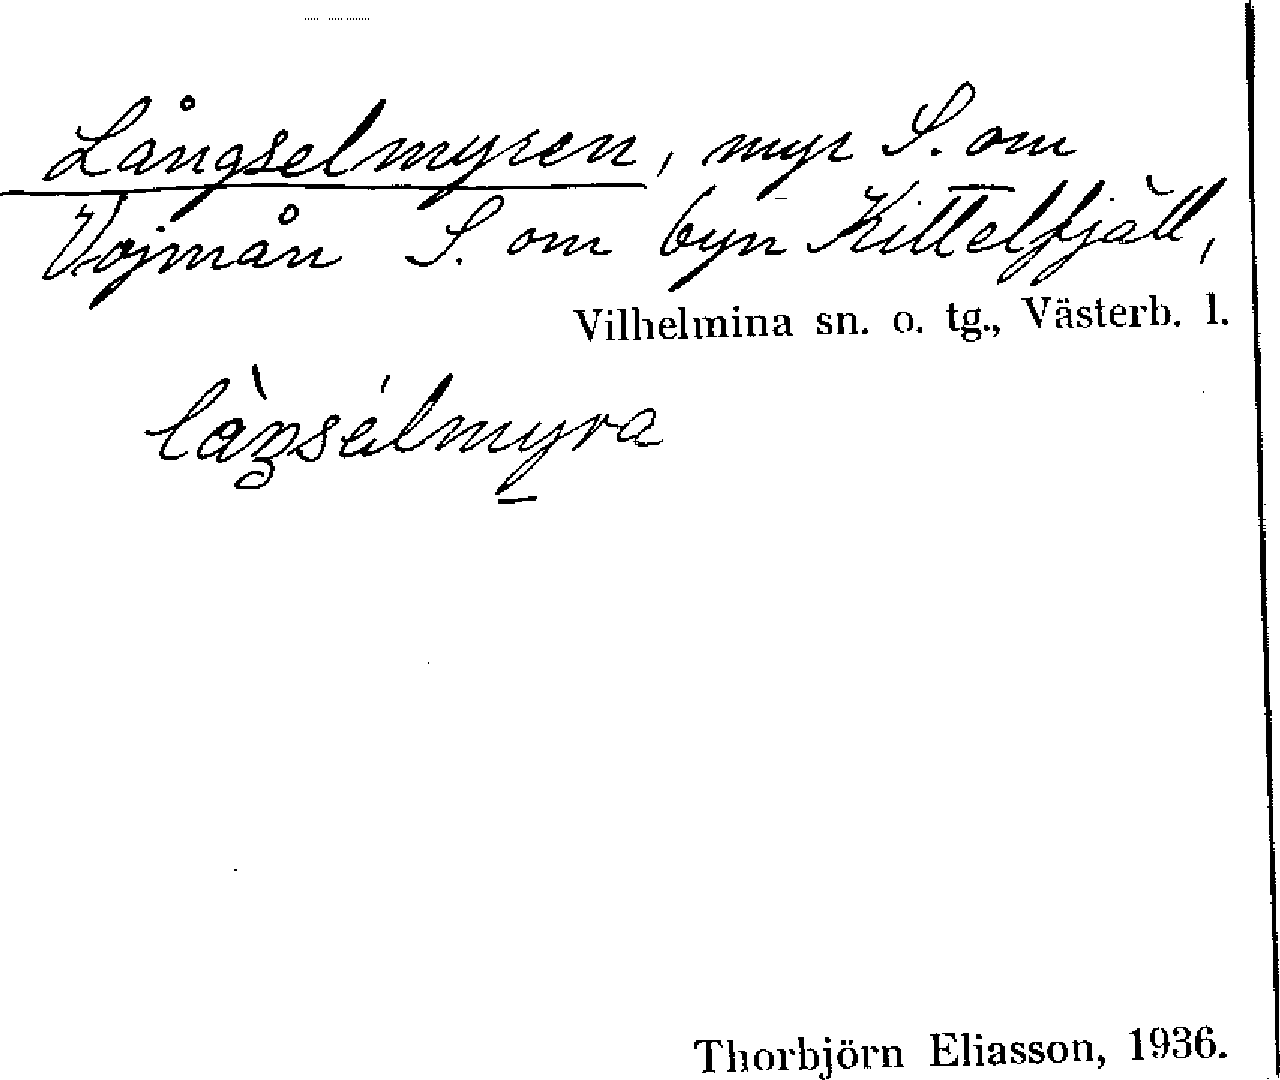 Långselmyren, myr S. om
Vojmån S. om byn Kittelfjäll,
Vilhelmina sn. o. tg., Västerb. l.
Thorbjörn Eliasson, 1936.